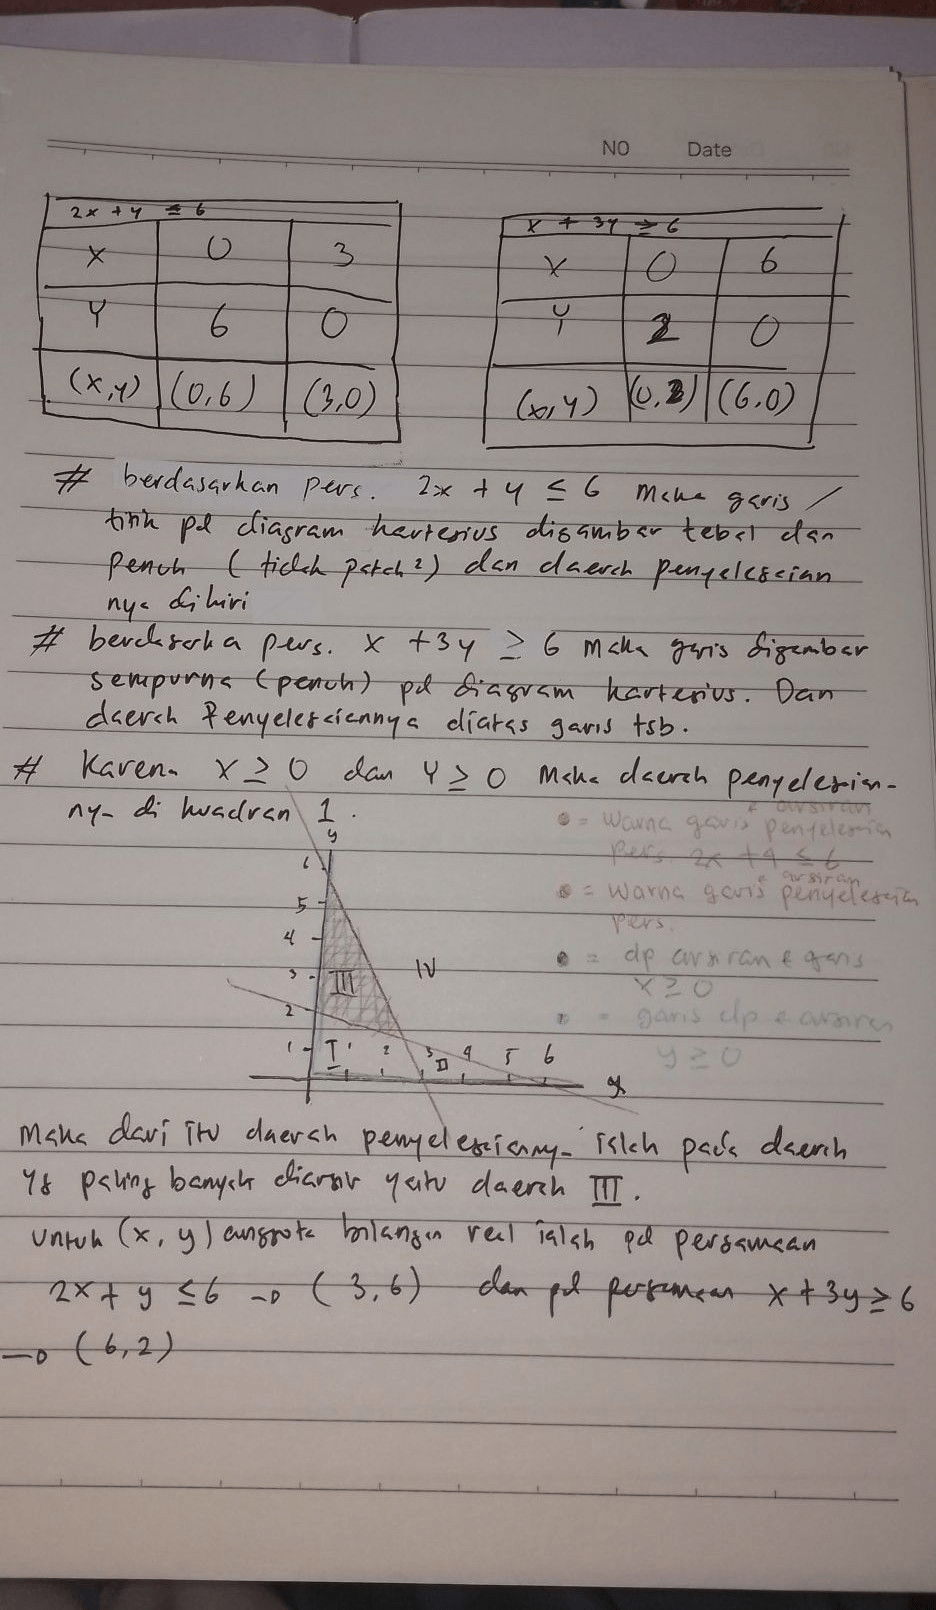 NO Date
2x + y ≤ 6
X 0 3
Y 6 0
(x,y) (0,6) (3,0)
x + 3y ≥ 6
X 0 6
Y 2 0
(x,y) (0,2) (6,0)
# berdasarkan pers. 2x + y ≤ 6 maka garis /
titik pd diagram kartesius digambar tebal dan
penuh ( tidak patah²) dan daerah penyelesaian
nya dikiri
# berdasarka pers. x + 3y ≥ 6 maka garis digambar
sempurna (penuh) pd diagram kartesius. Dan
daerah Penyelesaiannya diatas garis tsb.
# Karena x ≥ 0 dan y ≥ 0 maka daerah penyelesaian-
nya di kuadran 1.
= warna garis & arsiran penyelesaian
pers. 2x + y ≤ 6
= warna garis & arsiran penyelesaian
pers.
= dp arsiran & garis
x ≥ 0
= garis dp & arsiran
y ≥ 0
y
6
5
4
3
2
1
III
IV
I
II
1 2 3 4 5 6
x
maka dari itu daerah penyelesaianny- ialah pada daerah
yg paling banyak diarsir yaitu daerah III.
untuk (x, y) anggota bilangan real ialah pd persamaan
2x + y ≤ 6 → ( 3,6) dan pd persamaan x + 3y ≥ 6
→ ( 6,2)